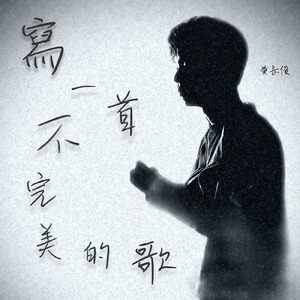 寫一首不完美的歌
黃云俊